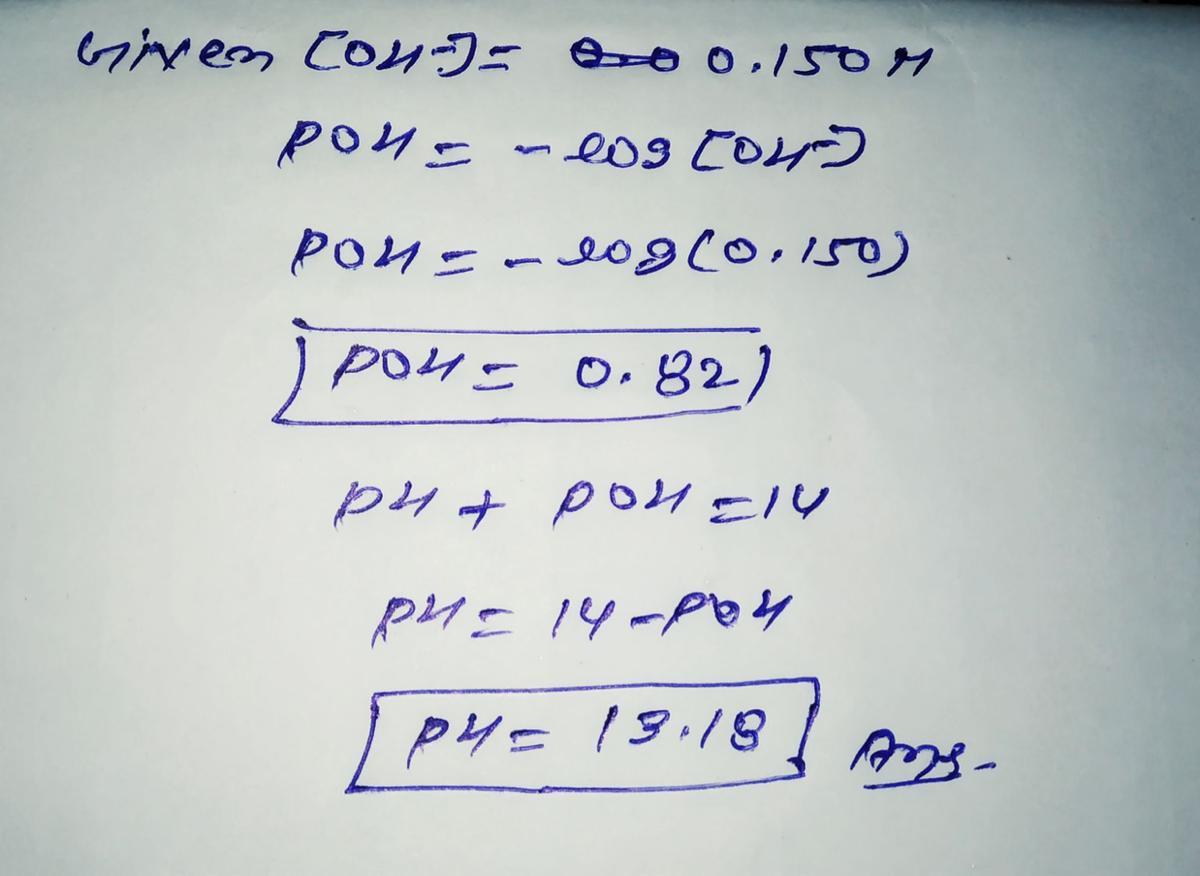 Given [OH-] = 0.150 M
POH = - log [OH-]
POH = - log (0.150)
POH = 0.82
PH + POH = 14
PH = 14 - POH
PH = 13.18 Ans-